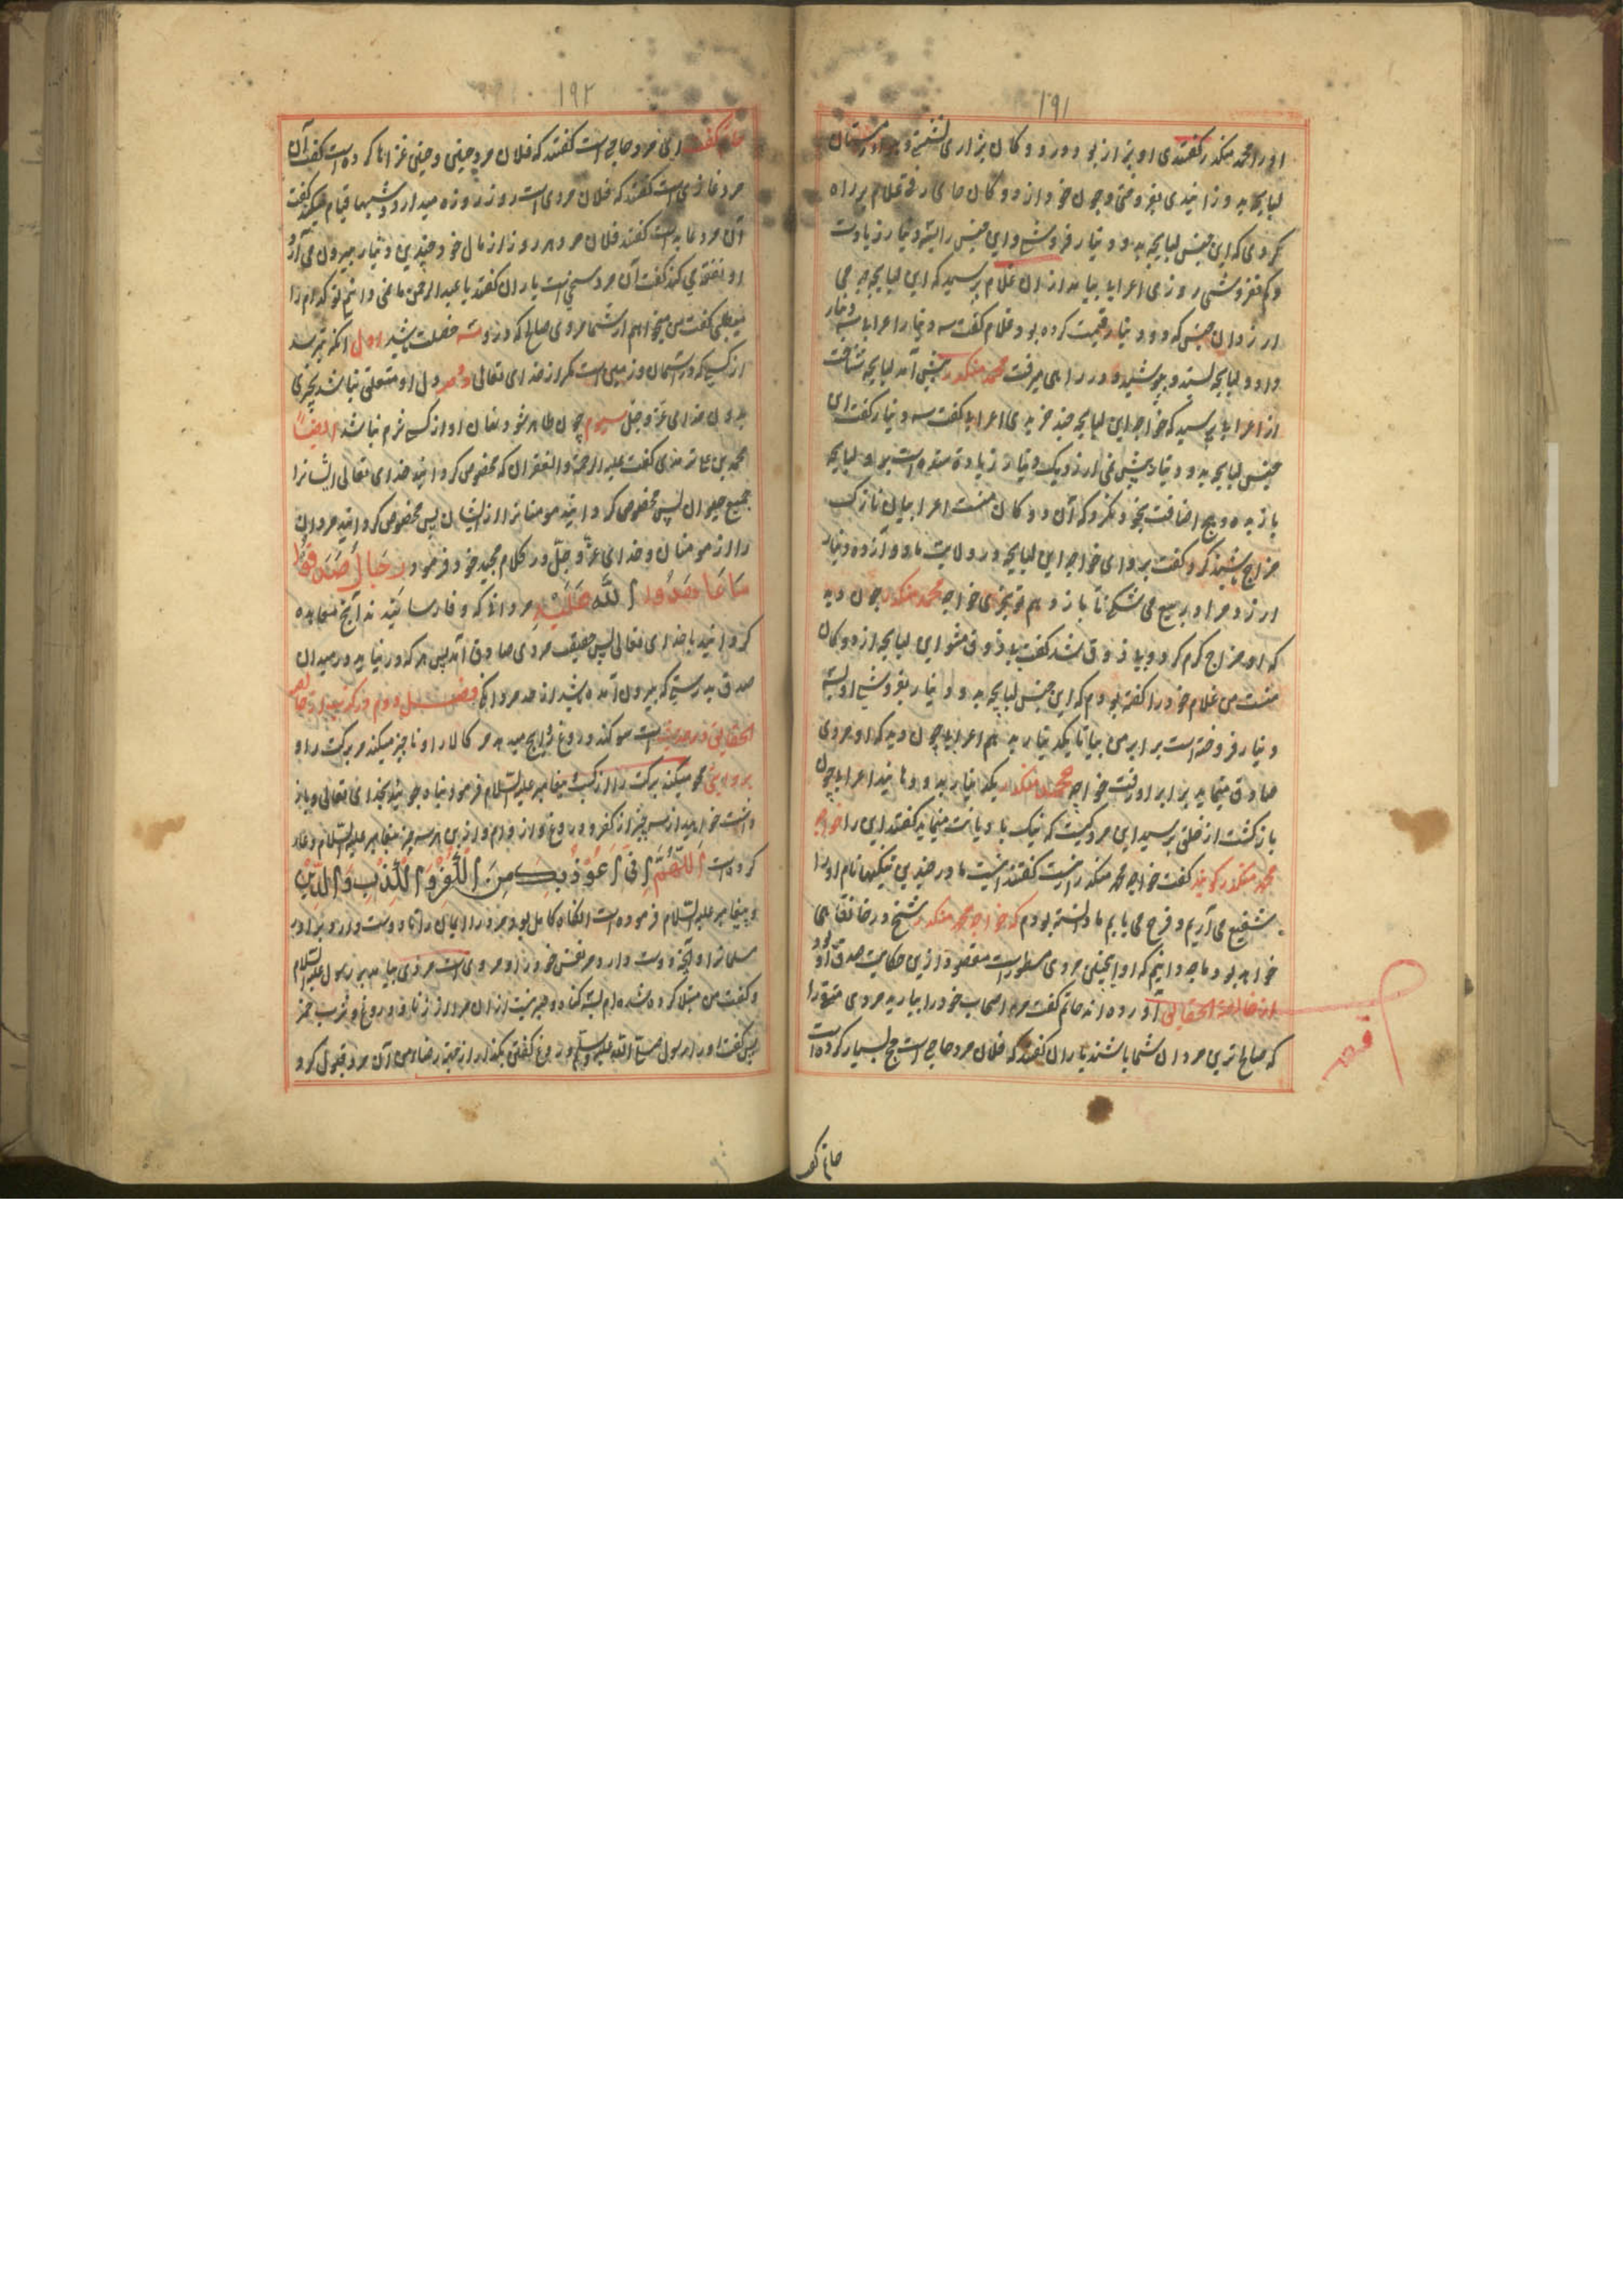 ۱۹۱
او را محمد منکدر گفتندی او بزاز بود و در دوکان بزازی نشستی و
لباچه بدوزانیدی بفروختی و چون خود از دوکان جای رفتی غلام براه
کردی که این جنس لباچه به دو دینار فروشی و این جنس را بسه دینار زیادت
و کم نفروشی روزی اعرابی بیامد از آن غلام پرسید که این لباچه بچه می
ارزد آن جنس که دو دینار قیمت کرده بود غلام گفت سه دینار اعرابی سه دینار
داد و لباچه بستد و بپوشید و در راهی میرفت محمد منکدر پیش آمد لباچه شناخت
از اعرابی پرسید که خواجه این لباچه چند خریدی اعرابی گفت سه دینار گفت ای
جنس لباچه به دو دینار بیش نمی ارزد یک دینار زیادة ستده است بیا و لباچه
باز بده و هیچ اضافت بخود نکرد که آن دوکان منست اعرابیان نازک
مزاج باشند گرم گفت برو ای خواجه این لباچه در ولایت ما دوازده دینار
ارزد مرا و بیع می شکنانی باز دهم تو بخری خواجه محمد منکدر چون دید
که او مزاج گرم کرد و بی ذوق شد گفت بی ذوق مشو این لباچه از دوکان
منست من غلام خود را گفته بودم که این جنس لباچه به دو دینار بفروشی او بسه
دینار فروخته است برابر من بیا تا یکدینار بدهم اعرابی چون دید که او مردی
صادق مینماید برابر او رفت خواجه محمد منکدر یکدینار بدو دهانید اعرابی چون
بازگشت از خلق پرسید این مرد کیست که نیک با دیانت مینماید گفتند این را خواجه
محمد منکدر گویند گفت خواجه محمد منکدر اینست گفتند اینست ما در چندین تنگیها نام او را
شفیع می آریم و فرح می یابیم ما دانسته بودم که خواجه محمد منکدر شیخ در خانقاهی
خواهد بود ما چه دانیم که او اینچنین مردی مستورست مقصود ازین حکایت صدق او بود
از خالصة الحقایق آورده اند حاتم گفت مر اصحاب خود را بیارید مردی متقی را
که صالح ترین مردان شما باشند یاران گفتند که فلان مرد حاجی است حج بسیار کرده است
قصه
حاتم گفت
۱۹۲
حاتم گفت این مرد حاجی است گفتند که فلان مرد چنین و چنین غزاها کرده است گفت آن
مرد غازی است گفتند که فلان مردی است روز روزه میدارد و شبها قیام میکند گفت
آن مرد عابد است گفتند فلان مرد هر روز از مال خود چندین دینار بیرون می آرد
او نفقه می کند گفت آن مرد سخی است یاران گفتند یا عبدالرحمن ما نمی دانیم تو کدام را
میطلبی گفت من میخواهم از شما مردی صالح که درو سه خصلت باشد اول آنکه نترسد
از کسی که در آسمان و زمین است مگر از خدای تعالی دوم دل او متعلق نباشد بچیزی
بدون خدای عز و جل سیوم چون ظاهر شود نهان او از کسی شرم نباشد ایضاً
محمد بن علی ترمذی گفت علیه الرحمة والغفران که مخصوص گردانید خدای تعالی ایشانرا
جمیع حیوان پس مخصوص گردانید مومنانرا از ایشان پس مخصوص گردانید مردان
را از مومنان و خدای عزّ و جلّ در کلام مجید خود فرمود رِجَالٌ صَدَقُوا
مَا عَاهَدُوا اللَّهَ عَلَيْهِ مردانکه وفا رسانیدند آنچ معاهده
کردانید با خدای تعالی پس حقیقت مردی صادق آمد پس هر که در نیاید در میدان
صدق بدرستی که بیرون آمده باشد از حد مردانگی فصل دوم در کذب از خالصة
الحقایق در حدیث است سوگند دروغ رایج میدهد مر کالا را و ناچیز میکند مر برکت را و
بروایتی محو میکند برکت را از کسب پیغامبر علیه السلام فرمود پناه جوئید بخدای تعالی و باز
داشت خواهید از سه چیز از کفر و دروغ و از وام و ازین هر سه چیز پیغامبر علیه السلام دعا
کرده است اَللّٰهُمَّ اِنِّی اَعُوْذُبِکَ مِنَ الْکُفْرِ وَ الْکِذْبِ وَ الدَّیْنِ
و پیغامبر علیه السلام فرموده است آنگاه کامل بود مر مرد را ایمان را تا دوست دارد برادر
مسلمانرا آنچه دوست دارد مر نفس خود را و مرویست مردی بیامد بر رسول علیه السلام
و گفت من مبتلا کرده شده ام بسه گناه و صبر نیست از آن مرا از زنا و دروغ و شرب خمر
پس گفت او را رسول صلی الله علیه وسلم دروغ گفتن بگذار از جهت رضاء من آن مرد قبول کرد